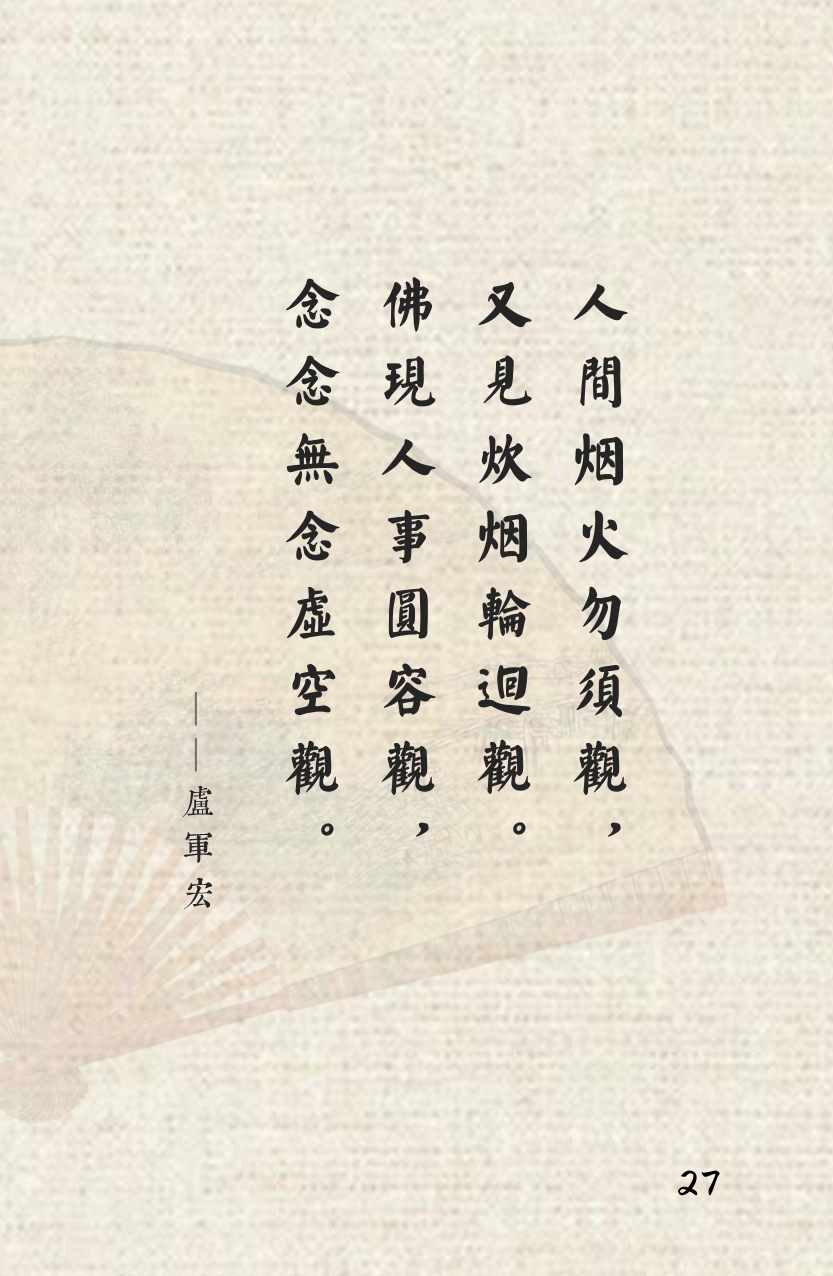 人間烟火勿須觀，
又見炊烟輪迴觀。
佛現人事圓容觀，
念念無念虛空觀。
——盧軍宏
27